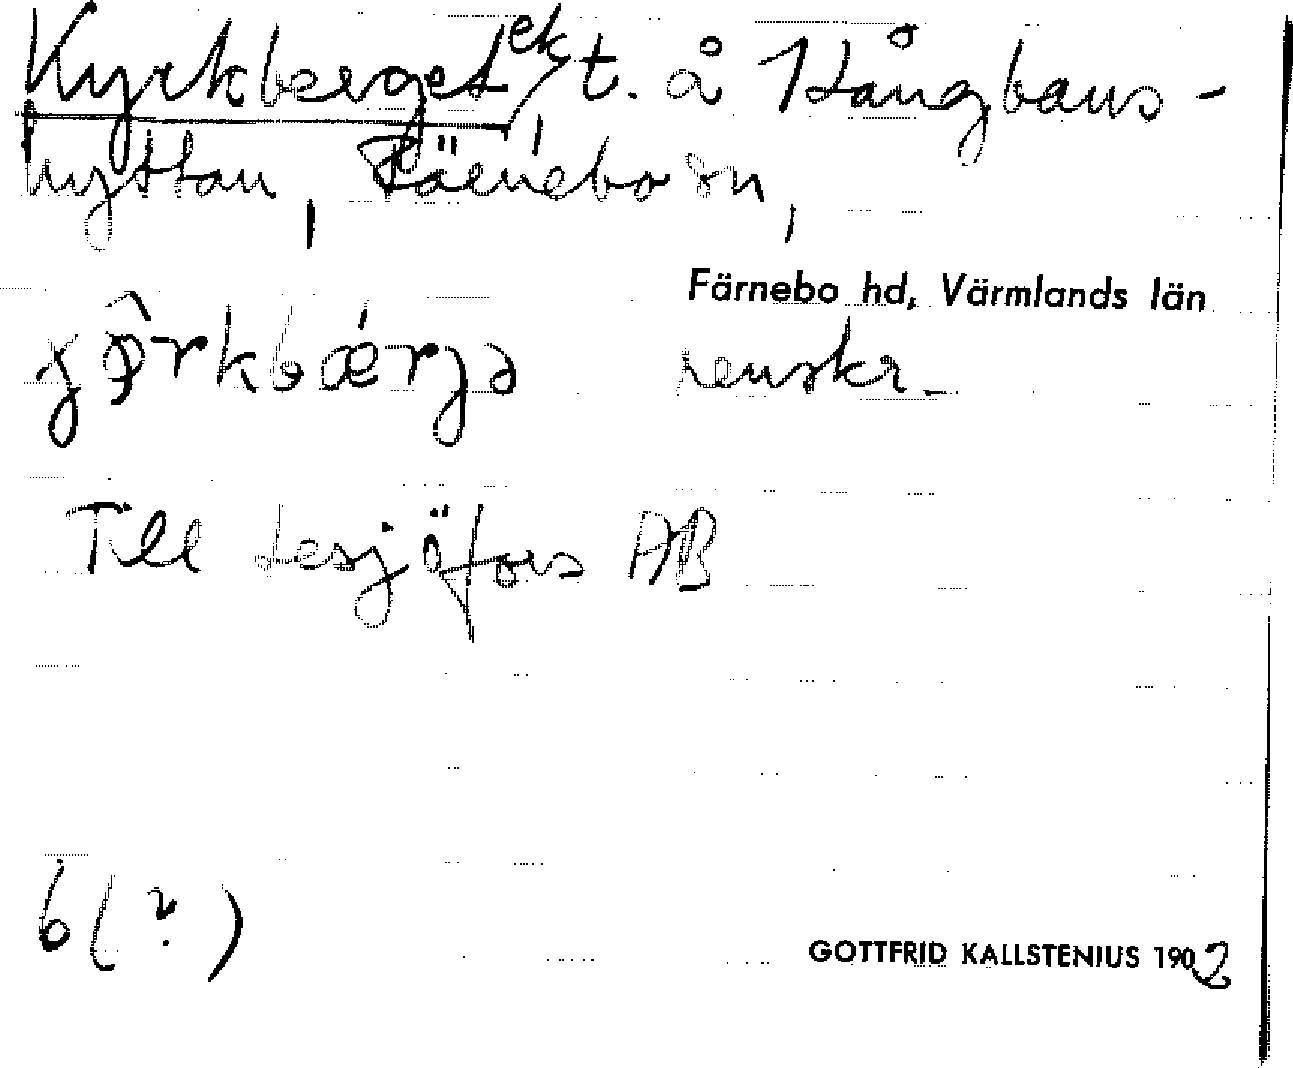 Kyrkberget, ek t. å Långbans-
hyttan, Färnebo sn,
Färnebo hd, Värmlands län
renskr.
Till Lesjöfors AB
6 (?)
GOTTFRID KALLSTENIUS 1902